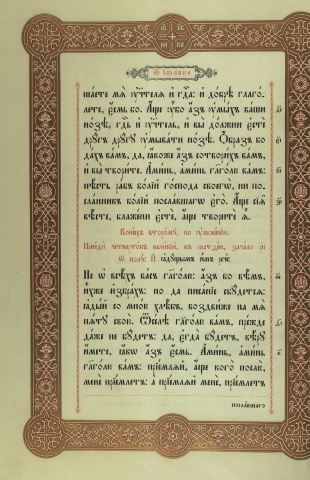 Ѿ ІѠАННА
шаете мѧ ᲂу҆чт҃елѧ и҆ гдⷭ҇а: и҆ до́брѣ глаго́-
лете, є҆́смь бо. А҆́ще ᲂу҆̀бо а҆́зъ ᲂу҆мы́хъ ва́ши
но́зѣ, гдⷭ҇ь и҆ ᲂу҆чт҃ль, и҆ вы̀ до́лжни є҆стѐ
дрꙋ́гъ дрꙋ́гꙋ ᲂу҆мыва́ти но́зѣ. Ѻ҆́бразъ бо
да́хъ ва́мъ, да, ꙗ҆́коже а҆́зъ сотвори́хъ ва́мъ,
и҆ вы̀ твори́те. А҆ми́нь, а҆ми́нь гл҃ю ва́мъ:
нѣ́сть ра́бъ бо́лїй го́спода своегѡ̀, ни по-
сла́нникъ бо́лїй посла́вшагѡ є҆го̀. А҆́ще сїѧ̑
вѣ́сте, бл҃же́ни є҆стѐ, а҆́ще творитѐ ѧ҆̀.
Коне́цъ второ́мꙋ, по ᲂу҆мове́нїи.
въ
Не ѡ҆ всѣ́хъ ва́съ гл҃ю: а҆́зъ бо вѣ́мъ,
и҆̀хже и҆збра́хъ: но да писа́нїе сбꙋ́детсѧ:
ꙗ҆ды́й со мно́ю хлѣ́бъ, воздви́же на мѧ̀
пѧ́тꙋ свою̀. Ѿсе́лѣ гл҃ю ва́мъ, пре́жде
да́же не бꙋ́детъ: да, є҆гда̀ бꙋ́детъ, вѣ́рꙋ
и҆́мете, ꙗ҆́кѡ а҆́зъ є҆́смь. А҆ми́нь, а҆ми́нь
гл҃ю ва́мъ: прїе́млѧй, а҆́ще кого̀ послю̀,
менѐ прїе́млетъ: а҆ прїе́млѧй менѐ, прїе́млетъ
посла́вшаго